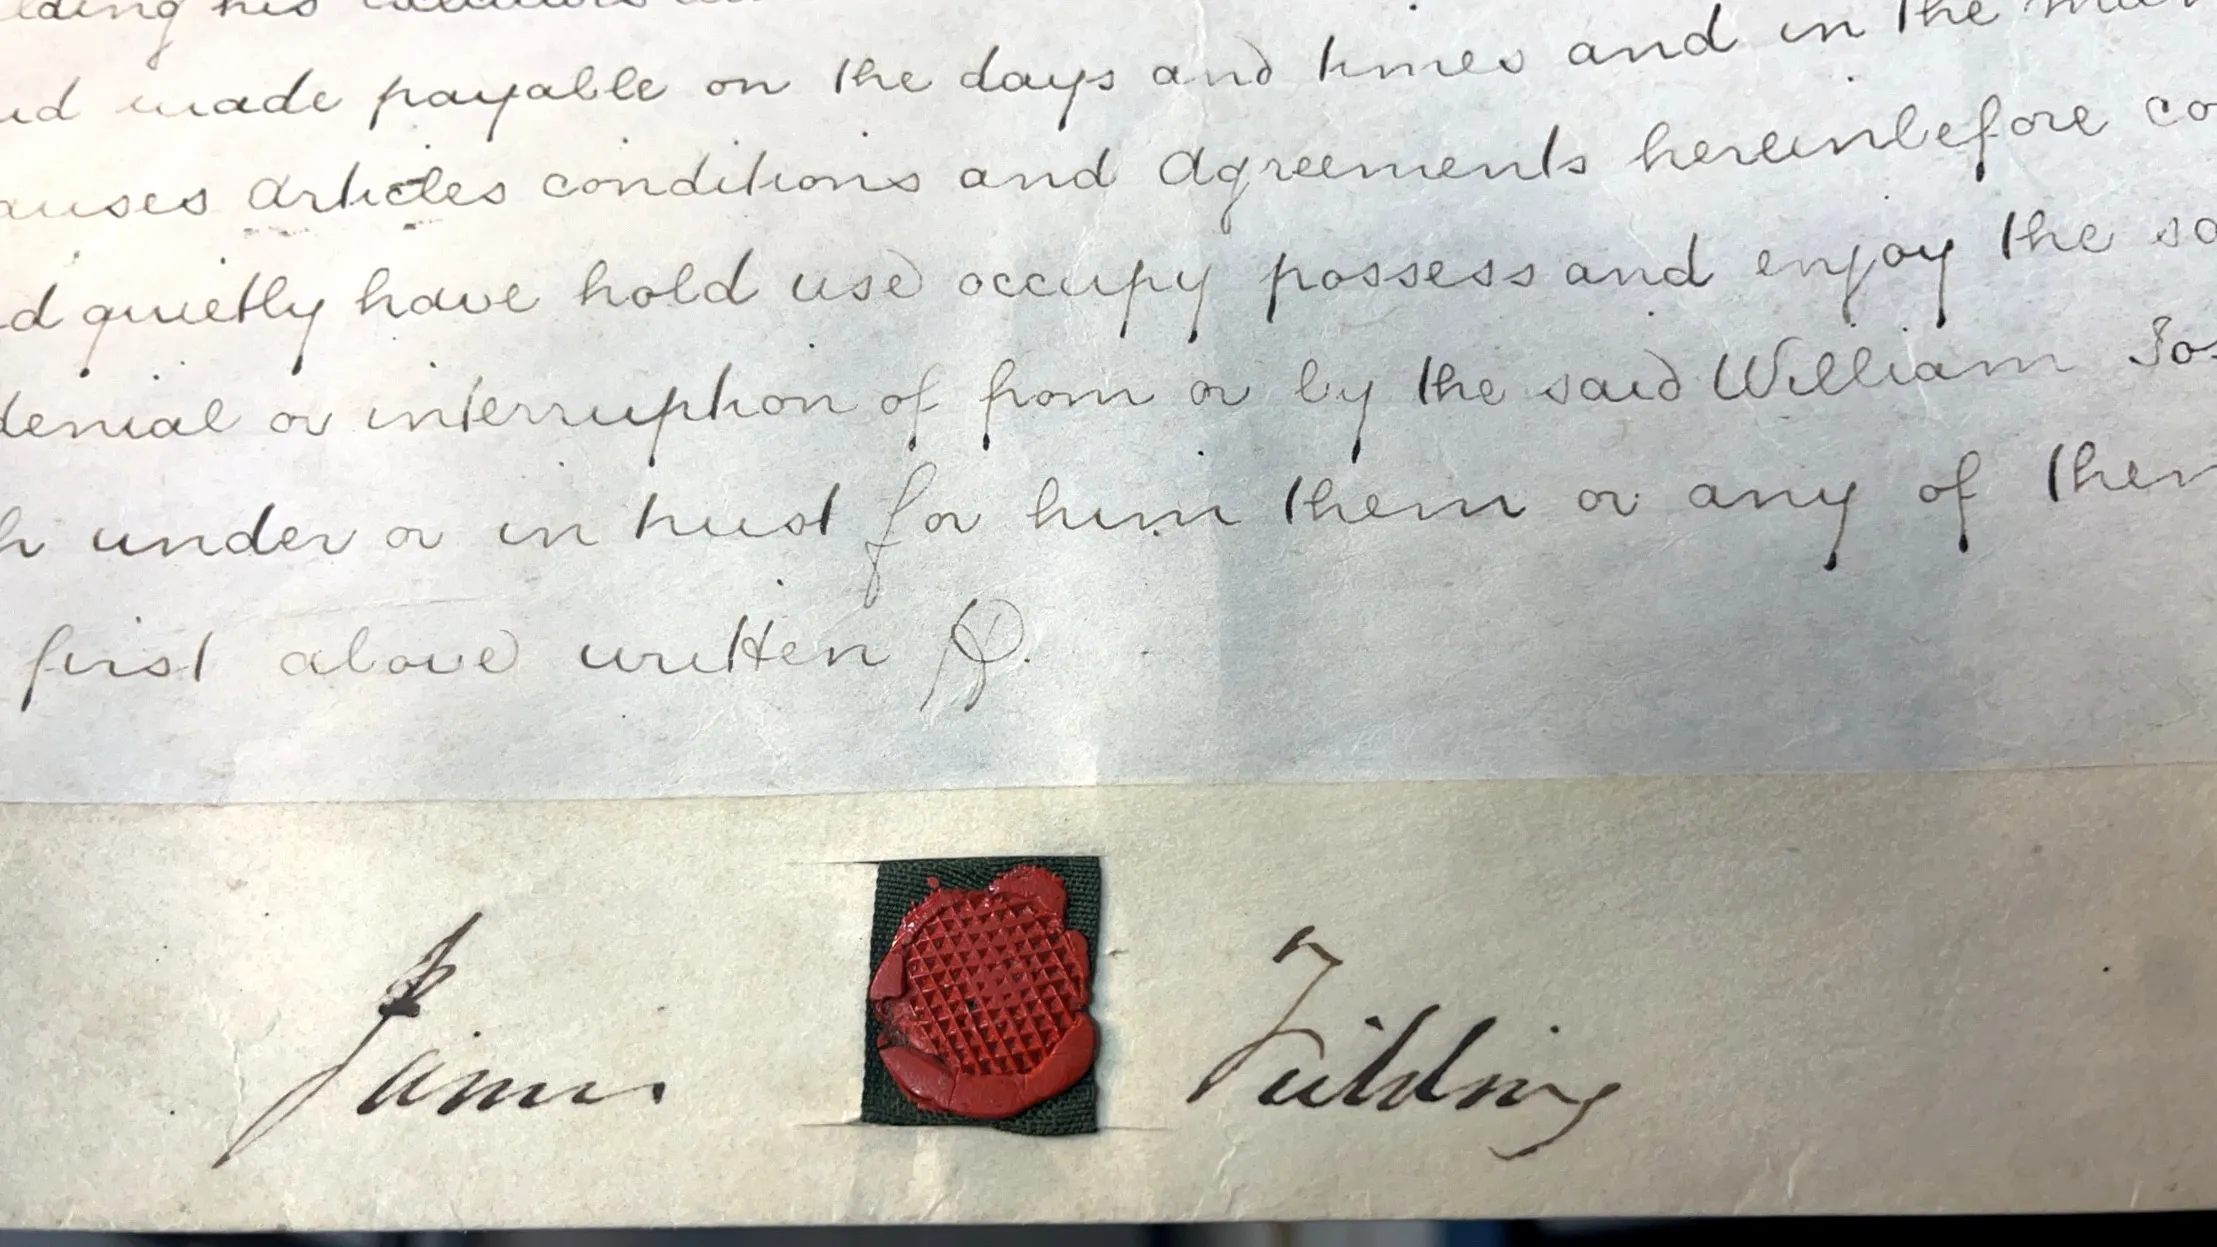 lding his executors
and made payable on the days and times and in the man
auses articles conditions and agreements hereinbefore co
d quietly have hold use occupy possess and enjoy the sa
denial or interruption of from or by the said William Jos
h under or in trust for him them or any of them
first above written
James Fielding